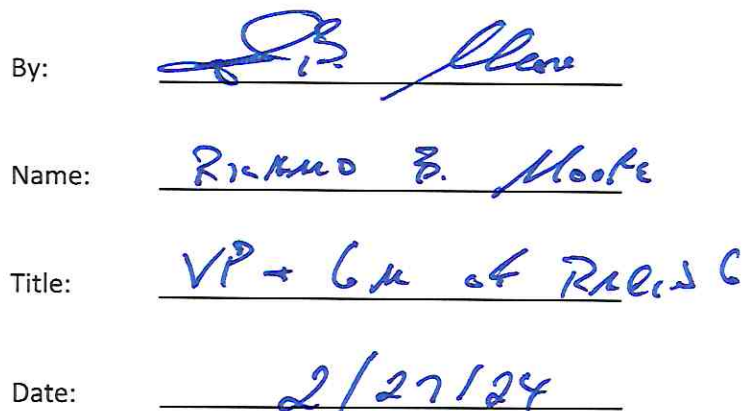 By: B. Moore
Name: Richard B. Moore
Title: VP + GM of Racing
Date: 2/27/24